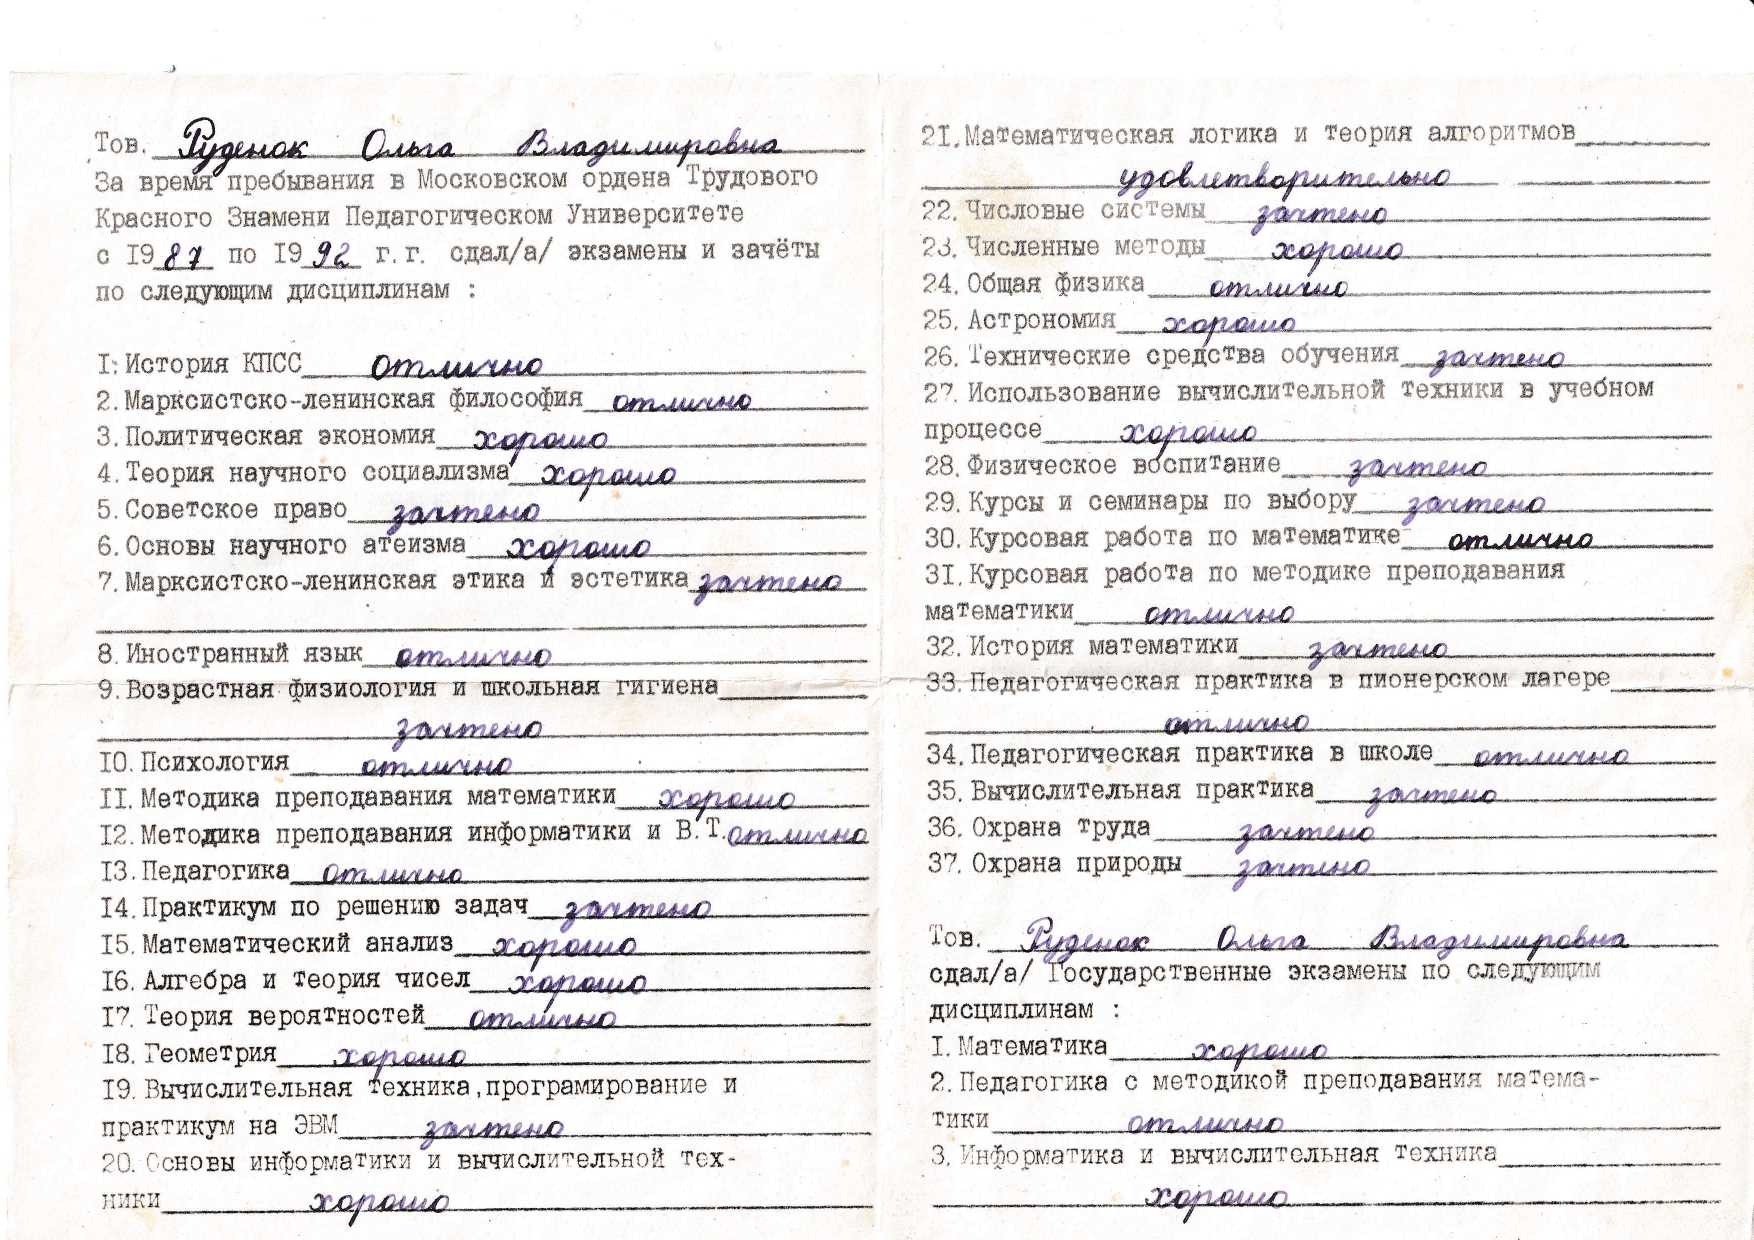 Тов. Руденок Ольга Владимировна
За время пребывания в Московском ордена Трудового
Красного Знамени Педагогическом Университете
с 1987 по 1992 г.г. сдал/а/ экзамены и зачёты
по следующим дисциплинам :
I. История КПСС отлично
2. Марксистско-ленинская философия отлично
3. Политическая экономия хорошо
4. Теория научного социализма хорошо
5. Советское право зачтено
6. Основы научного атеизма хорошо
7. Марксистско-ленинская этика и эстетика зачтено
8. Иностранный язык отлично
9. Возрастная физиология и школьная гигиена
зачтено
I0. Психология отлично
II. Методика преподавания математики хорошо
I2. Методика преподавания информатики и В.Т. отлично
I3. Педагогика отлично
I4. Практикум по решению задач зачтено
I5. Математический анализ хорошо
I6. Алгебра и теория чисел хорошо
I7. Теория вероятностей отлично
I8. Геометрия хорошо
I9. Вычислительная техника, програмирование и
практикум на ЭВМ зачтено
20. Основы информатики и вычислительной тех-
ники хорошо
2I. Математическая логика и теория алгоритмов
удовлетворительно
22. Числовые системы зачтено
23. Численные методы хорошо
24. Общая физика отлично
25. Астрономия хорошо
26. Технические средства обучения зачтено
27. Использование вычислительной техники в учебном
процессе хорошо
28. Физическое воспитание зачтено
29. Курсы и семинары по выбору зачтено
30. Курсовая работа по математике отлично
3I. Курсовая работа по методике преподавания
математики отлично
32. История математики зачтено
33. Педагогическая практика в пионерском лагере
отлично
34. Педагогическая практика в школе отлично
35. Вычислительная практика зачтено
36. Охрана труда зачтено
37. Охрана природы зачтено
Тов. Руденок Ольга Владимировна
сдал/а/ Государственные экзамены по следующим
дисциплинам :
I. Математика хорошо
2. Педагогика с методикой преподавания матема-
тики отлично
3. Информатика и вычислительная техника
хорошо